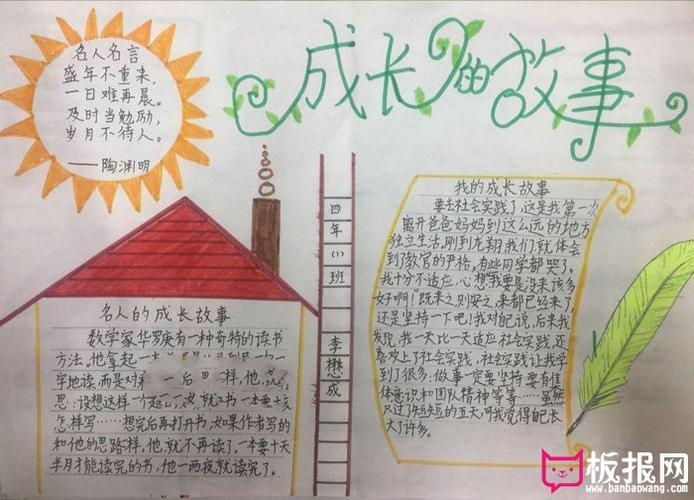 成长的故事
名人名言
盛年不重来，
一日难再晨。
及时当勉励，
岁月不待人。
——陶渊明
四年(一)班
李懋成
名人的成长故事
数学家华罗庚有一种奇特的读书
方法。他拿起一
字地读，而是对 一后 样，他
思：设想这样一个 ，一次，就 书一本要十亥
怎样写……想完后再打开书，如果作者写的
和他的思路样，他就不再读了。一本要十天
半月才能读完的书，他一两夜就读完了。
我的成长故事
要去社会实践了，这是我第一次
离开爸爸妈妈到这么远的地方
独立生活，刚到龙翔我们就体会
到了教官的严格，有些同学都哭了。
我十分不适应，心想：我要是没来该多
好啊！既来之则安之，来都已经来了，
还是坚持一下吧！我对自己说，后来我
发现，我一天比一天适应社会实践，还
喜欢上了社会实践，社会实践让我学
到了很多：做事一定要坚持，要有集
体意识和团队精神等等……虽然
只过了短短的五天，可我觉得自己长
大了许多。
板报网
www.banbaowang.com